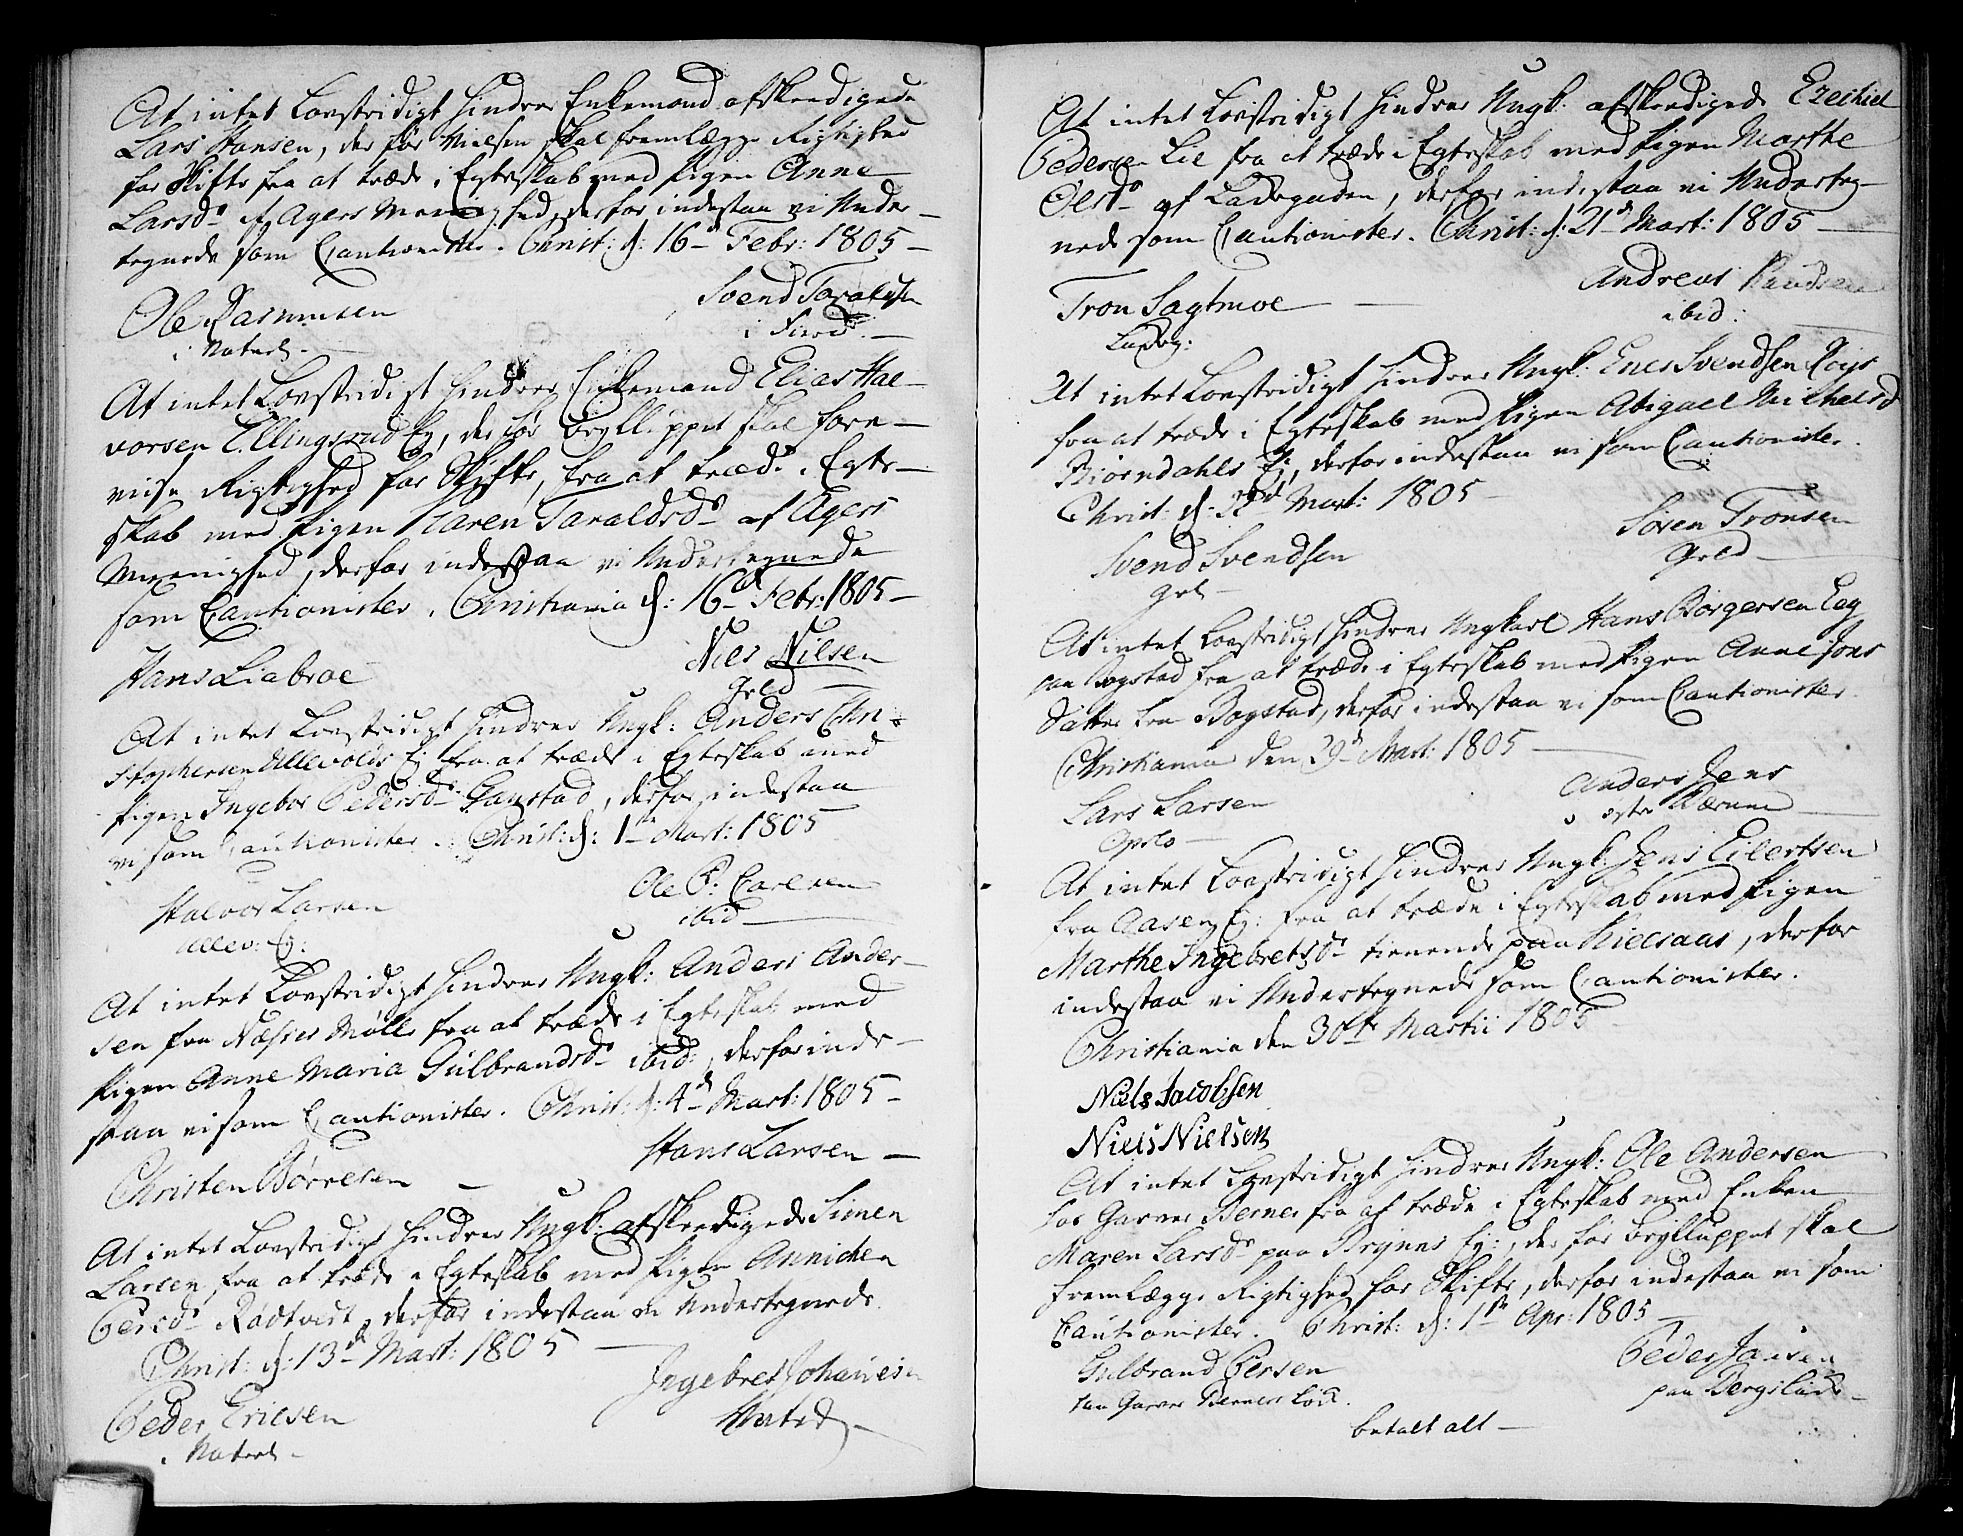 At intet Lovstridigt hindrer Enkemand afskeedigede
Lars Hansen, der før Vielsen skal fremlægge Rigtighed
for Skifte fra at træde i Egteskab med Pigen Anne
Larsd. af Agers Menighed, derfor indestaa vi Under-
tegnede som Cautionister. Christ: d: 16d Febr: 1805
Ole Rasmussen
Svend Taraldsen
At intet Lovstridigt hindrer Enkemand Elias Hal-
vorsen Ellingsrud Ej, der før Brylluppet skal fore-
viise Rigtighed for Skifte, fra at træde i Egte-
skab med Pigen Karen Taraldsd. af Agers
Meenighed, derfor indestaa vi Undertegnede
som Cautionister. Christiania d: 16d Febr: 1805
Hans Liabroe
Niels Nilsen
Grld
At intet Lovstridigt hindrer Ungk: Anders Chri-
stophersen Ullevolds Ej fra at træde i Egteskab med
Pigen Ingebor Pedersd. , derfor indestaa
vi som Cautionister. Christ: d: 1te Mart: 1805
Halvor Larsen
Ullev: Ej:
Ole P: Carlsen
ibid
At intet Lovstridigt hindrer Ungk: Anders Ander-
sen fra Næssets Mølle fra at træde i Egteskab med
Pigen Anne Maria Gulbrandsd. ibid:, derfor inde-
staa vi som Cautionister. Christ: d: 4d Mart: 1805
Christen Børresen
Hans Larsen
At intet Lovstridigt hindrer Ungk: afskeedigede Simen
Larsen fra at træde i Egteskab med Pigen Annichen
Persd. Rødtvedt, derfor indestaa vi Undertegnede.
Christ: d: 13d Mart: 1805
Peder Ericsen
Ingebret Johannesen
At intet Lovstridigt hindrer Ungk: afskeedigede Ezechiel
Pedersen Lie fra at træde i Egteskab med Pigen Marthe
Olsd. af Ladegaden, derfor indestaa vi Underteg-
nede som Cautionister. Christ: d: 21d Mart: 1805
Tron Sagtmoe
Ladeg:
Andreas Knudsen
ibid:
At intet Lovstridigt hindrer Ungk: Enes Svendsen
fra at træde i Egteskab med Pigen Abigael Michelsd
Biørndahls Ej, derfor indestaa vi som Cautionister.
Christ: d: Mart: 1805
Svend Svendsen
Grl
Søren Tronsen
Grld
At intet Lovstridigt hindrer Ungkarl Hans Børgersen Eeg
paa Bogstad fra at træde i Egteskab med Pigen Anne Jons
Datter fra Bogstad, derfor indestaa vi som Cautionister.
Christiania den 29d Mart: 1805
Lars Larsen
Opslo
Anders Jens
Bærum
At intet Lovstridigt hindrer Ungk: Jens Eilertsen
fra Aasen Ej: fra at træde i Egteskab med Pigen
Marthe Ingebretsd. tienende paa Kielsaas, derfor
indestaa vi Undertegnede som Cautionister.
Christiania den 30te Martii 1805
Niels Jacobsen
Niels Nielsen
At intet Lovstridigt hindrer Ungk: Ole Andersen
hos Garver Berner fra at træde i Egteskab med Enken
Maren Larsd. paa Brynns Ej:, der før Brylluppet skal
fremlægge Rigtighed for Skifte, derfor indestaa vi som
Cautionister. Christ: d: 1te Apr: 1805
Gulbrand Persen
paa Garver Berners Løk.
Peder Jansen
paa
betalt alt